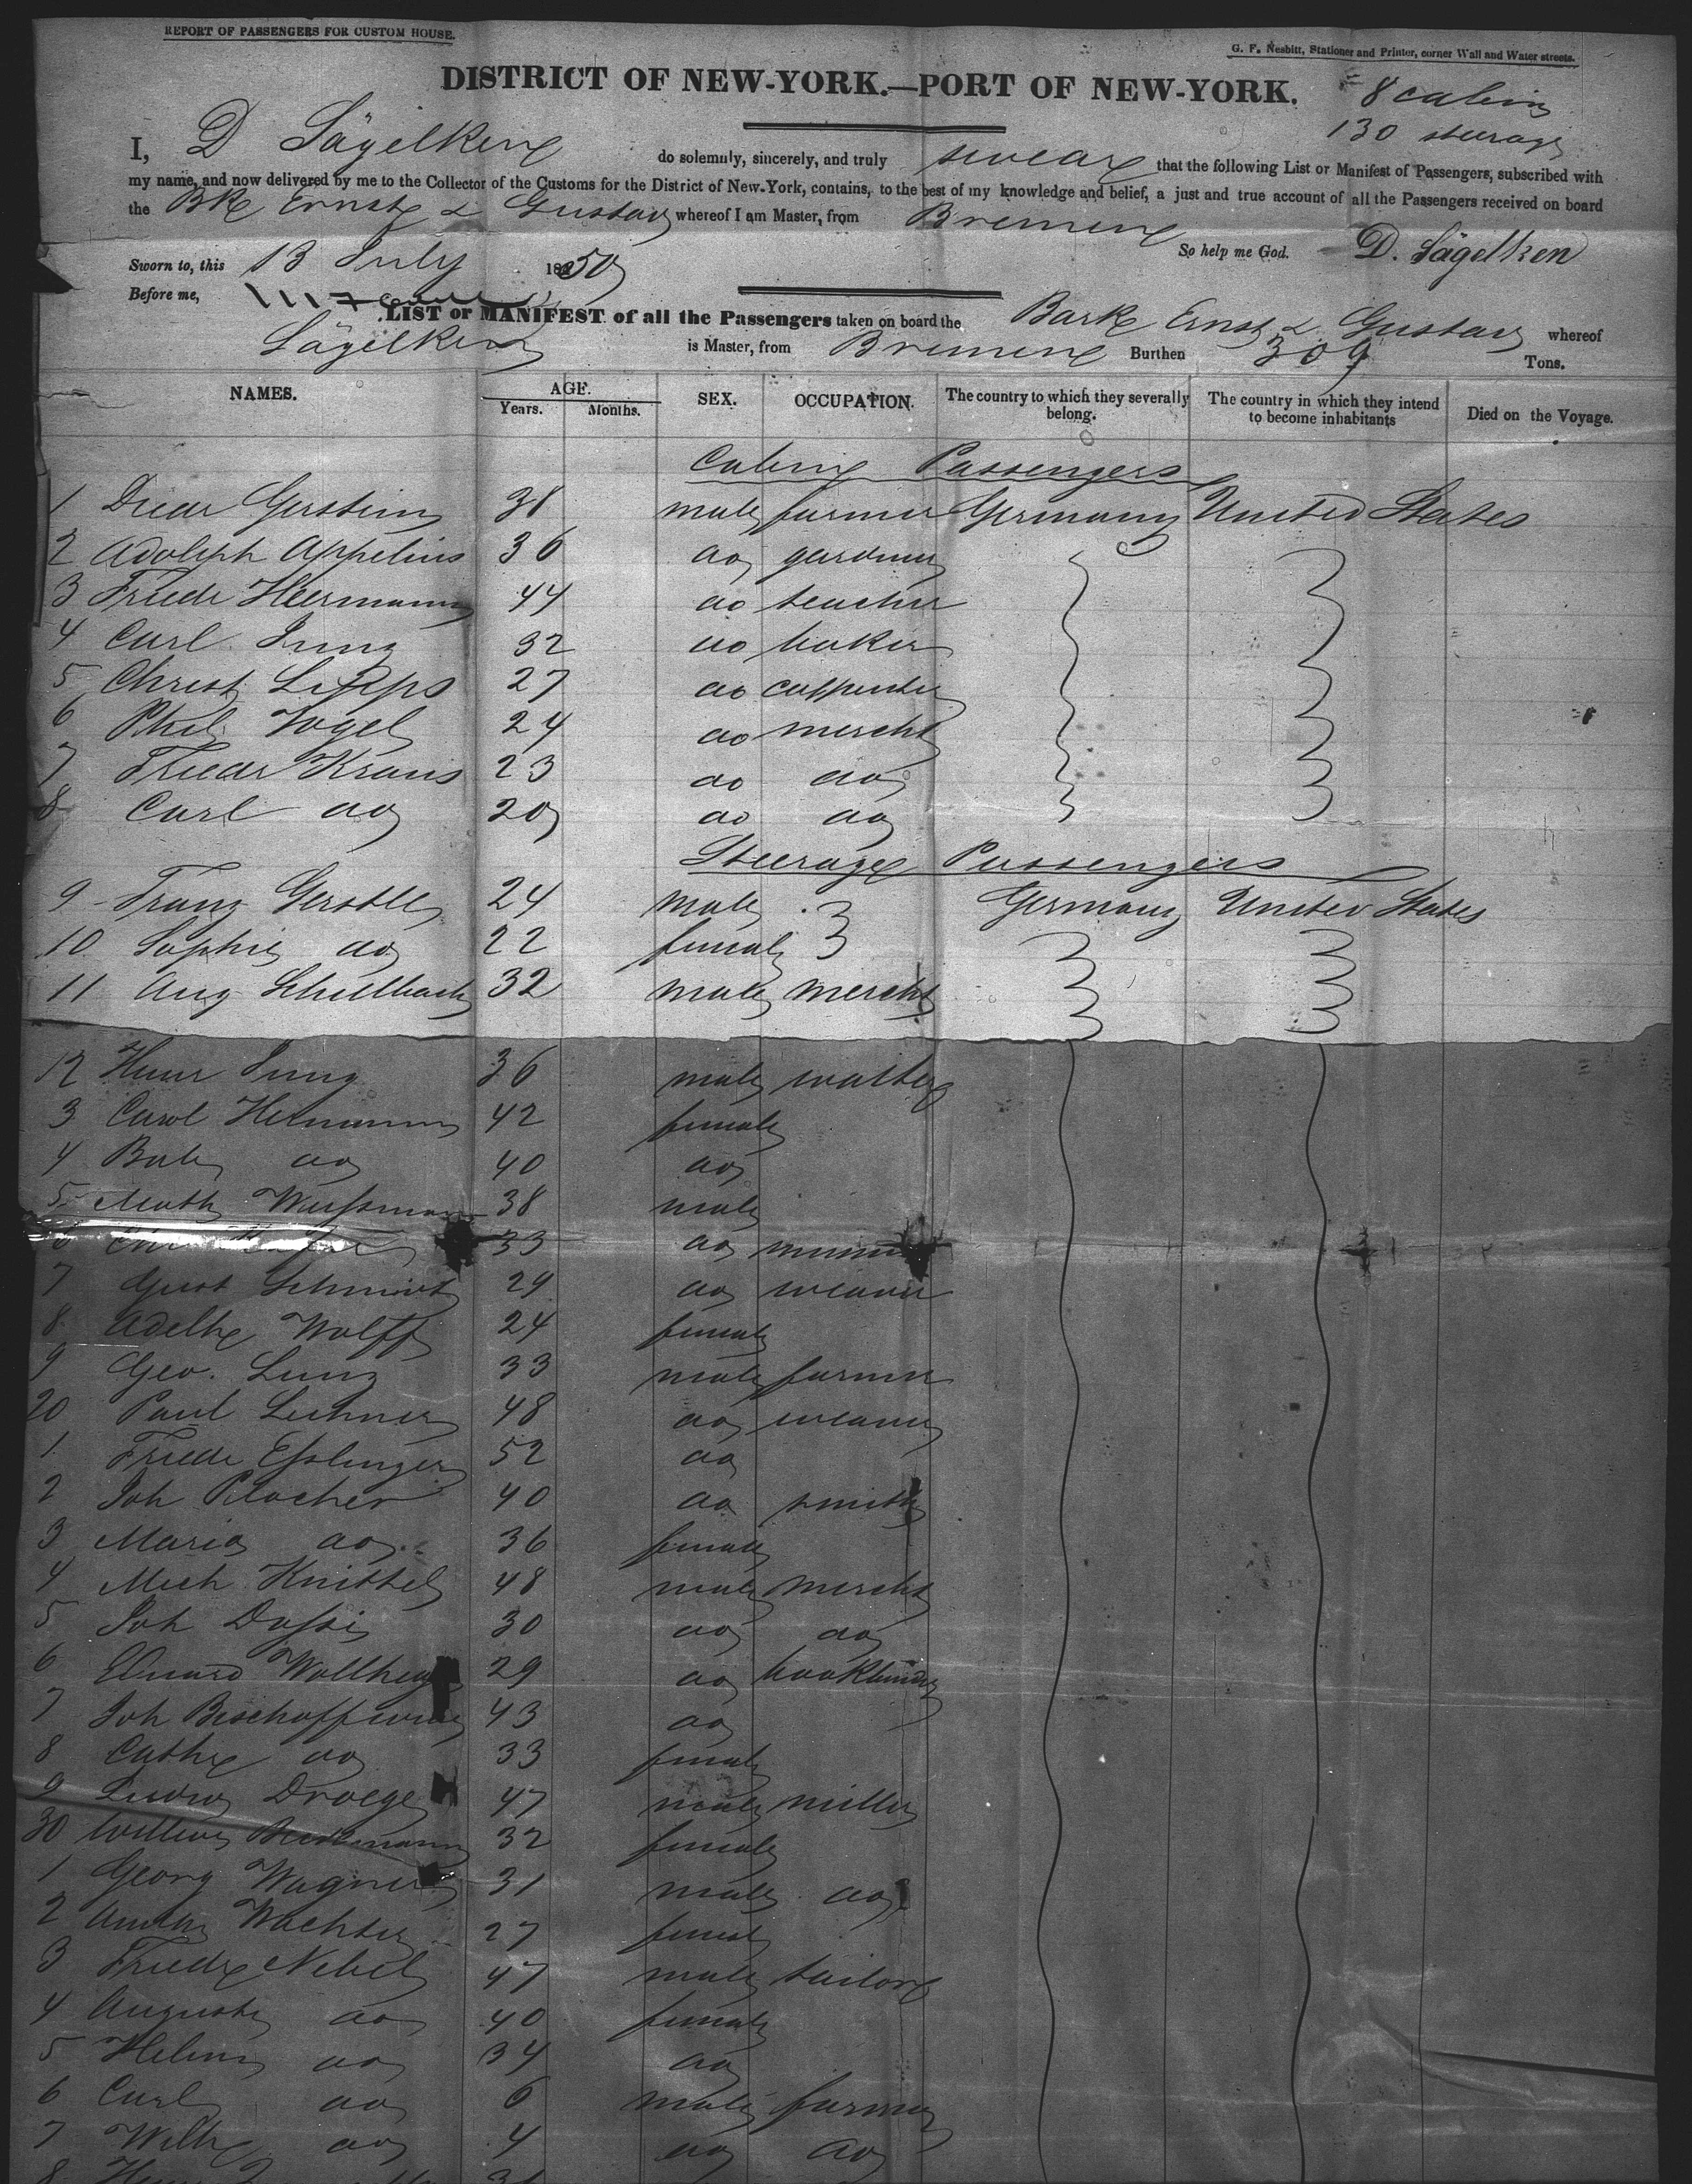 REPORT OF PASSENGERS FOR CUSTOM HOUSE.
G. F. Nesbitt, Stationer and Printer, corner Wall and Water streets.
DISTRICT OF NEW-YORK.—PORT OF NEW-YORK.
8 cabin
130 steerage
I, D Sägelken do solemnly, sincerely, and truly swear that the following List or Manifest of Passengers, subscribed with
my name, and now delivered by me to the Collector of the Customs for the District of New-York, contains, to the best of my knowledge and belief, a just and true account of all the Passengers received on board
the Bke Ernst & Gustav whereof I am Master, from Bremen
So help me God. D. Sägelken
Sworn to, this 13 July 1850
Before me,
LIST or MANIFEST of all the Passengers taken on board the Barke Ernst & Gustav whereof
Sägelken is Master, from Bremen Burthen 309 Tons.
NAMES. AGE. Years. Months. SEX. OCCUPATION. The country to which they severally belong. The country in which they intend to become inhabitants Died on the Voyage.
Cabin Passengers
1 Diedr Gerstein 38 male farmer Germany United States
2 Adolph Appelius 36 do gardner
3 Friedr Heermann 44 do teacher
4 Carl Jung 32 do baker
5 Christ Lipps 27 do carpenter
6 Phil Vogel 24 do mercht
7 Friedr Kraus 23 do do
8 Carl do 20 do do
Steerage Passengers
9 Franz Gerstle 24 male Germany United States
10 Sophie do 22 female
11 Aug Schellbach 32 male mercht
12 Heinr Jung 36 male
3 Carol Hermann 42 female
4 do 40 do
5 Math 38 male
6 33 do
7 Gust Schmidt 29 do weaver
8 Adelhe Wolff 24 female
9 Geo. Lunz 33 male farmer
20 Paul Lechner 48 do weaver
1 Friedr Eslinger 52 do
2 Joh Plocher 40 do smith
3 Maria do 36 female
4 Mich Knittel 48 male mercht
5 Joh 30 do do
6 Eduard 29 do bookbinder
7 Joh 43 do
8 Cathe do 33 female
9 Ludwig Droege 47 male miller
30 32 female
1 Georg Wagner 31 male do
2 Wachter 27 female
3 Friedr Nebel 47 male tailor
4 Auguste do 40 female
5 Helene do 34 do
6 Carl do 6 male farmer
7 Wilhe do 4 do do
8